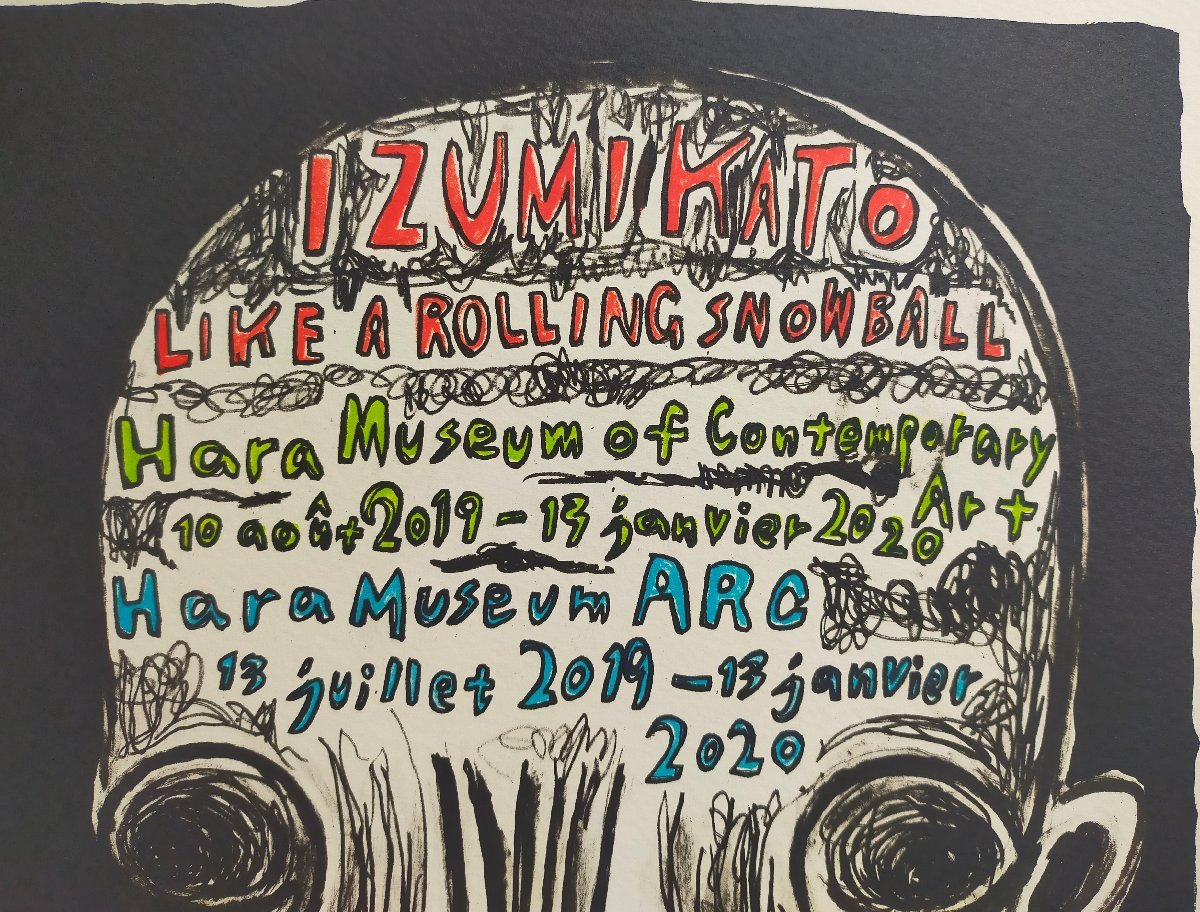 IZUMI KATO
LIKE A ROLLING SNOWBALL
Hara Museum of Contemporary
Art
10 août 2019 – 13 janvier 2020
Hara Museum ARC
13 juillet 2019 – 13 janvier
2020